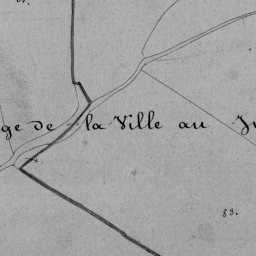 ge de la Ville au Ju
83.